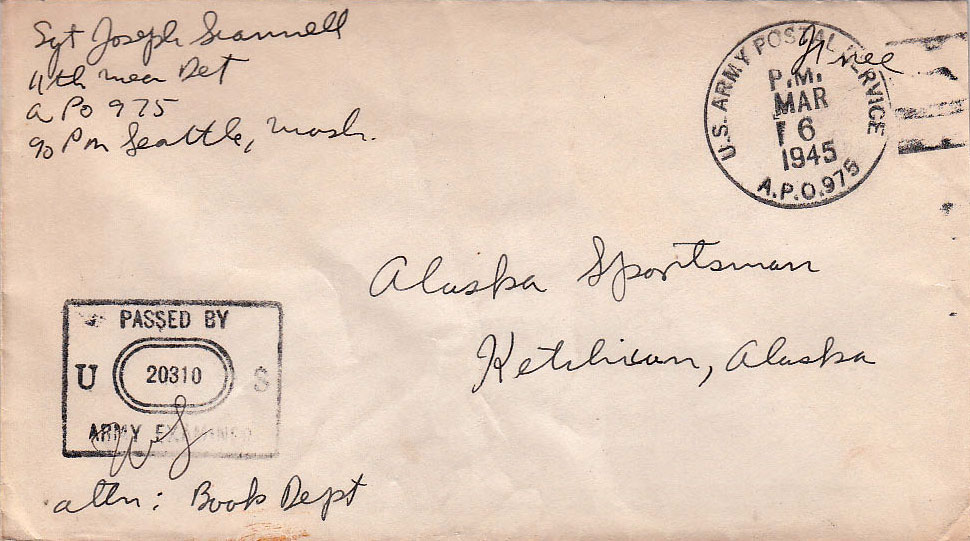 Sgt Joseph Scannell
11th Wea Det
APO 975
90 Pm Seattle, Wash.
Free
U.S. ARMY POSTAL SERVICE
P.M.
MAR
6
1945
A.P.O. 975
Alaska Sportsman
Ketchikan, Alaska
PASSED BY
U 20310 S
ARMY EXAMINER
attn: Book Dept